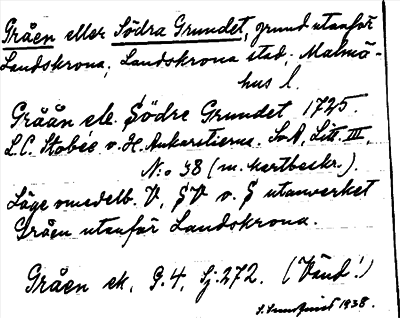 Gråen eller Södra Grundet, grund utanför
Landskrona, Landskrona stad, Malmö-
hus l.
Gråän el. Södre Grundet 1725.
L.C. Stobée o. H. Ankarstierna. SvA, Litt. III,
N:o 38 (m. kartbeskr.).
Läge omedelb. V, SV o. S utanverket
Gråen utanför Landskrona.
Gråen ek. G.4, Sj:272. (Vänd!)
S. 1938.